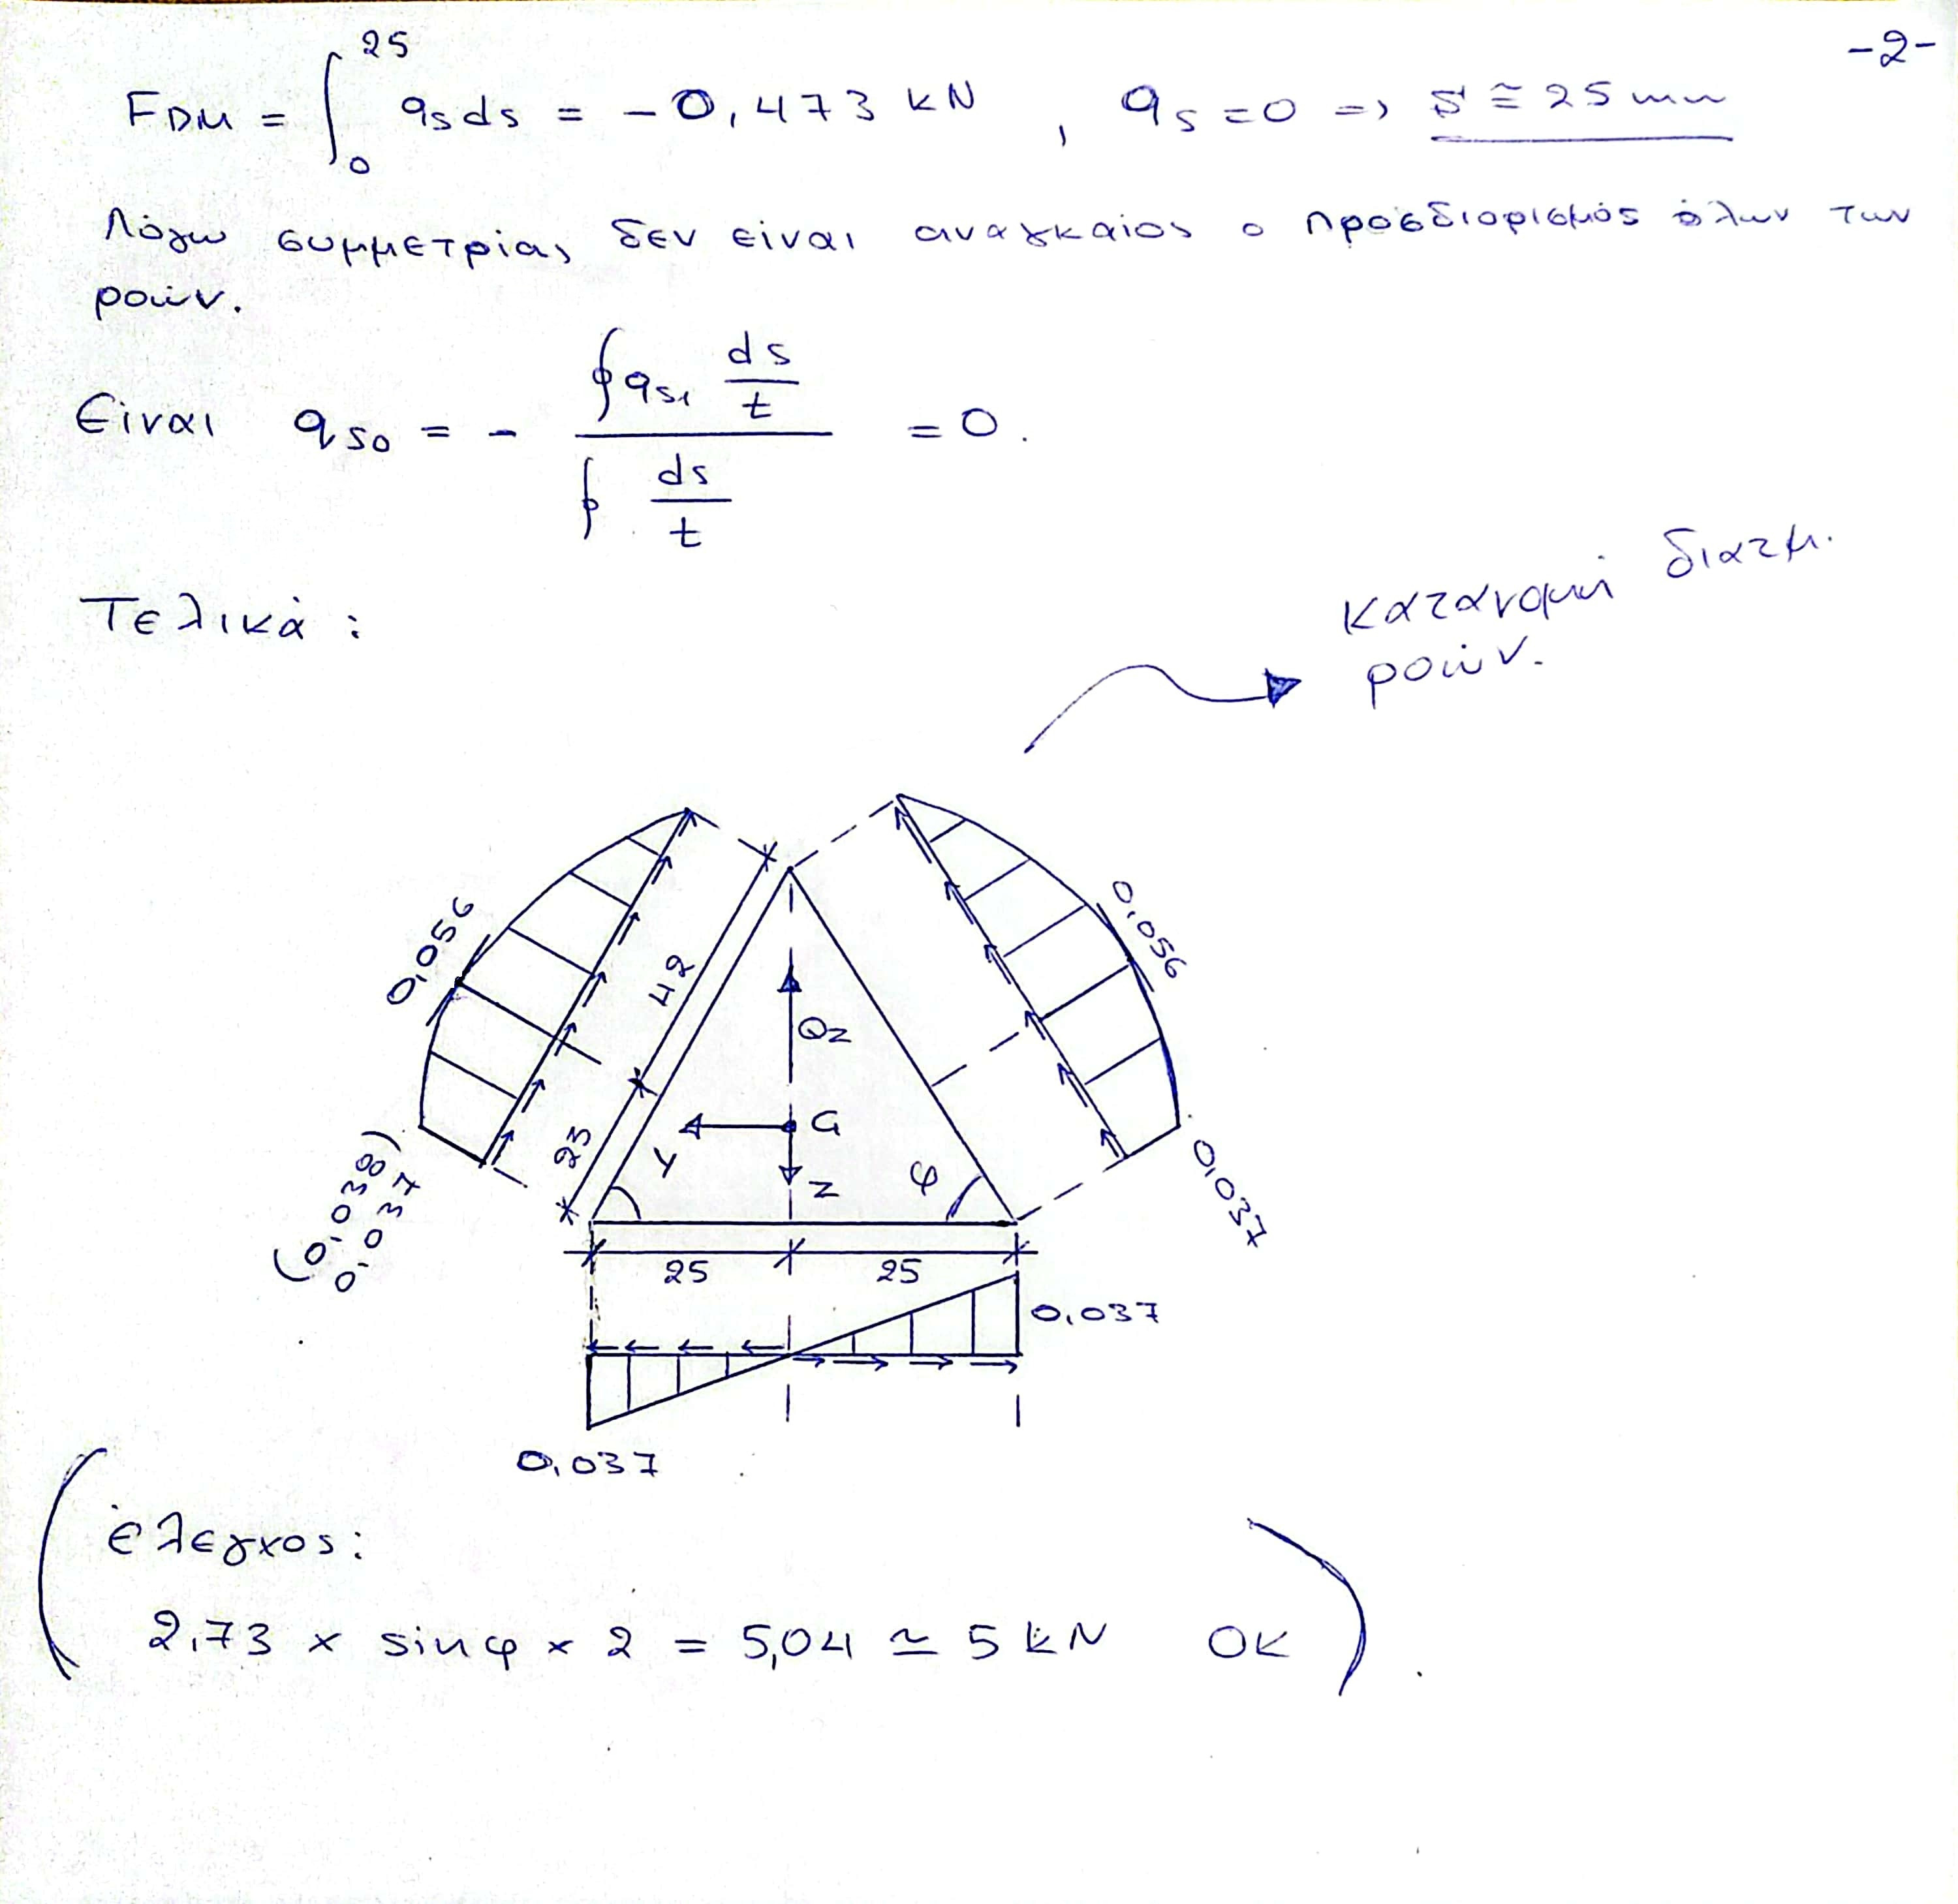 -2-
F_DM = ∫_0^25 q_s ds = -0,473 kN , q_s=0 => s ≅ 25 mm
Λόγω συμμετρίας δεν είναι αναγκαίος ο προσδιορισμός όλων των
ροών.
Είναι q_so = - (∮ q_s1 ds/t) / (∮ ds/t) = 0.
Τελικά :
Κατανομή διατμ.
ροών.
0,056
0,056
42
Qz
G
23
y
z
φ
(0,038)
0,037
0,037
25
25
0,037
0,037
έλεγχος:
2,73 x sinφ x 2 = 5,04 ≃ 5 kN OK